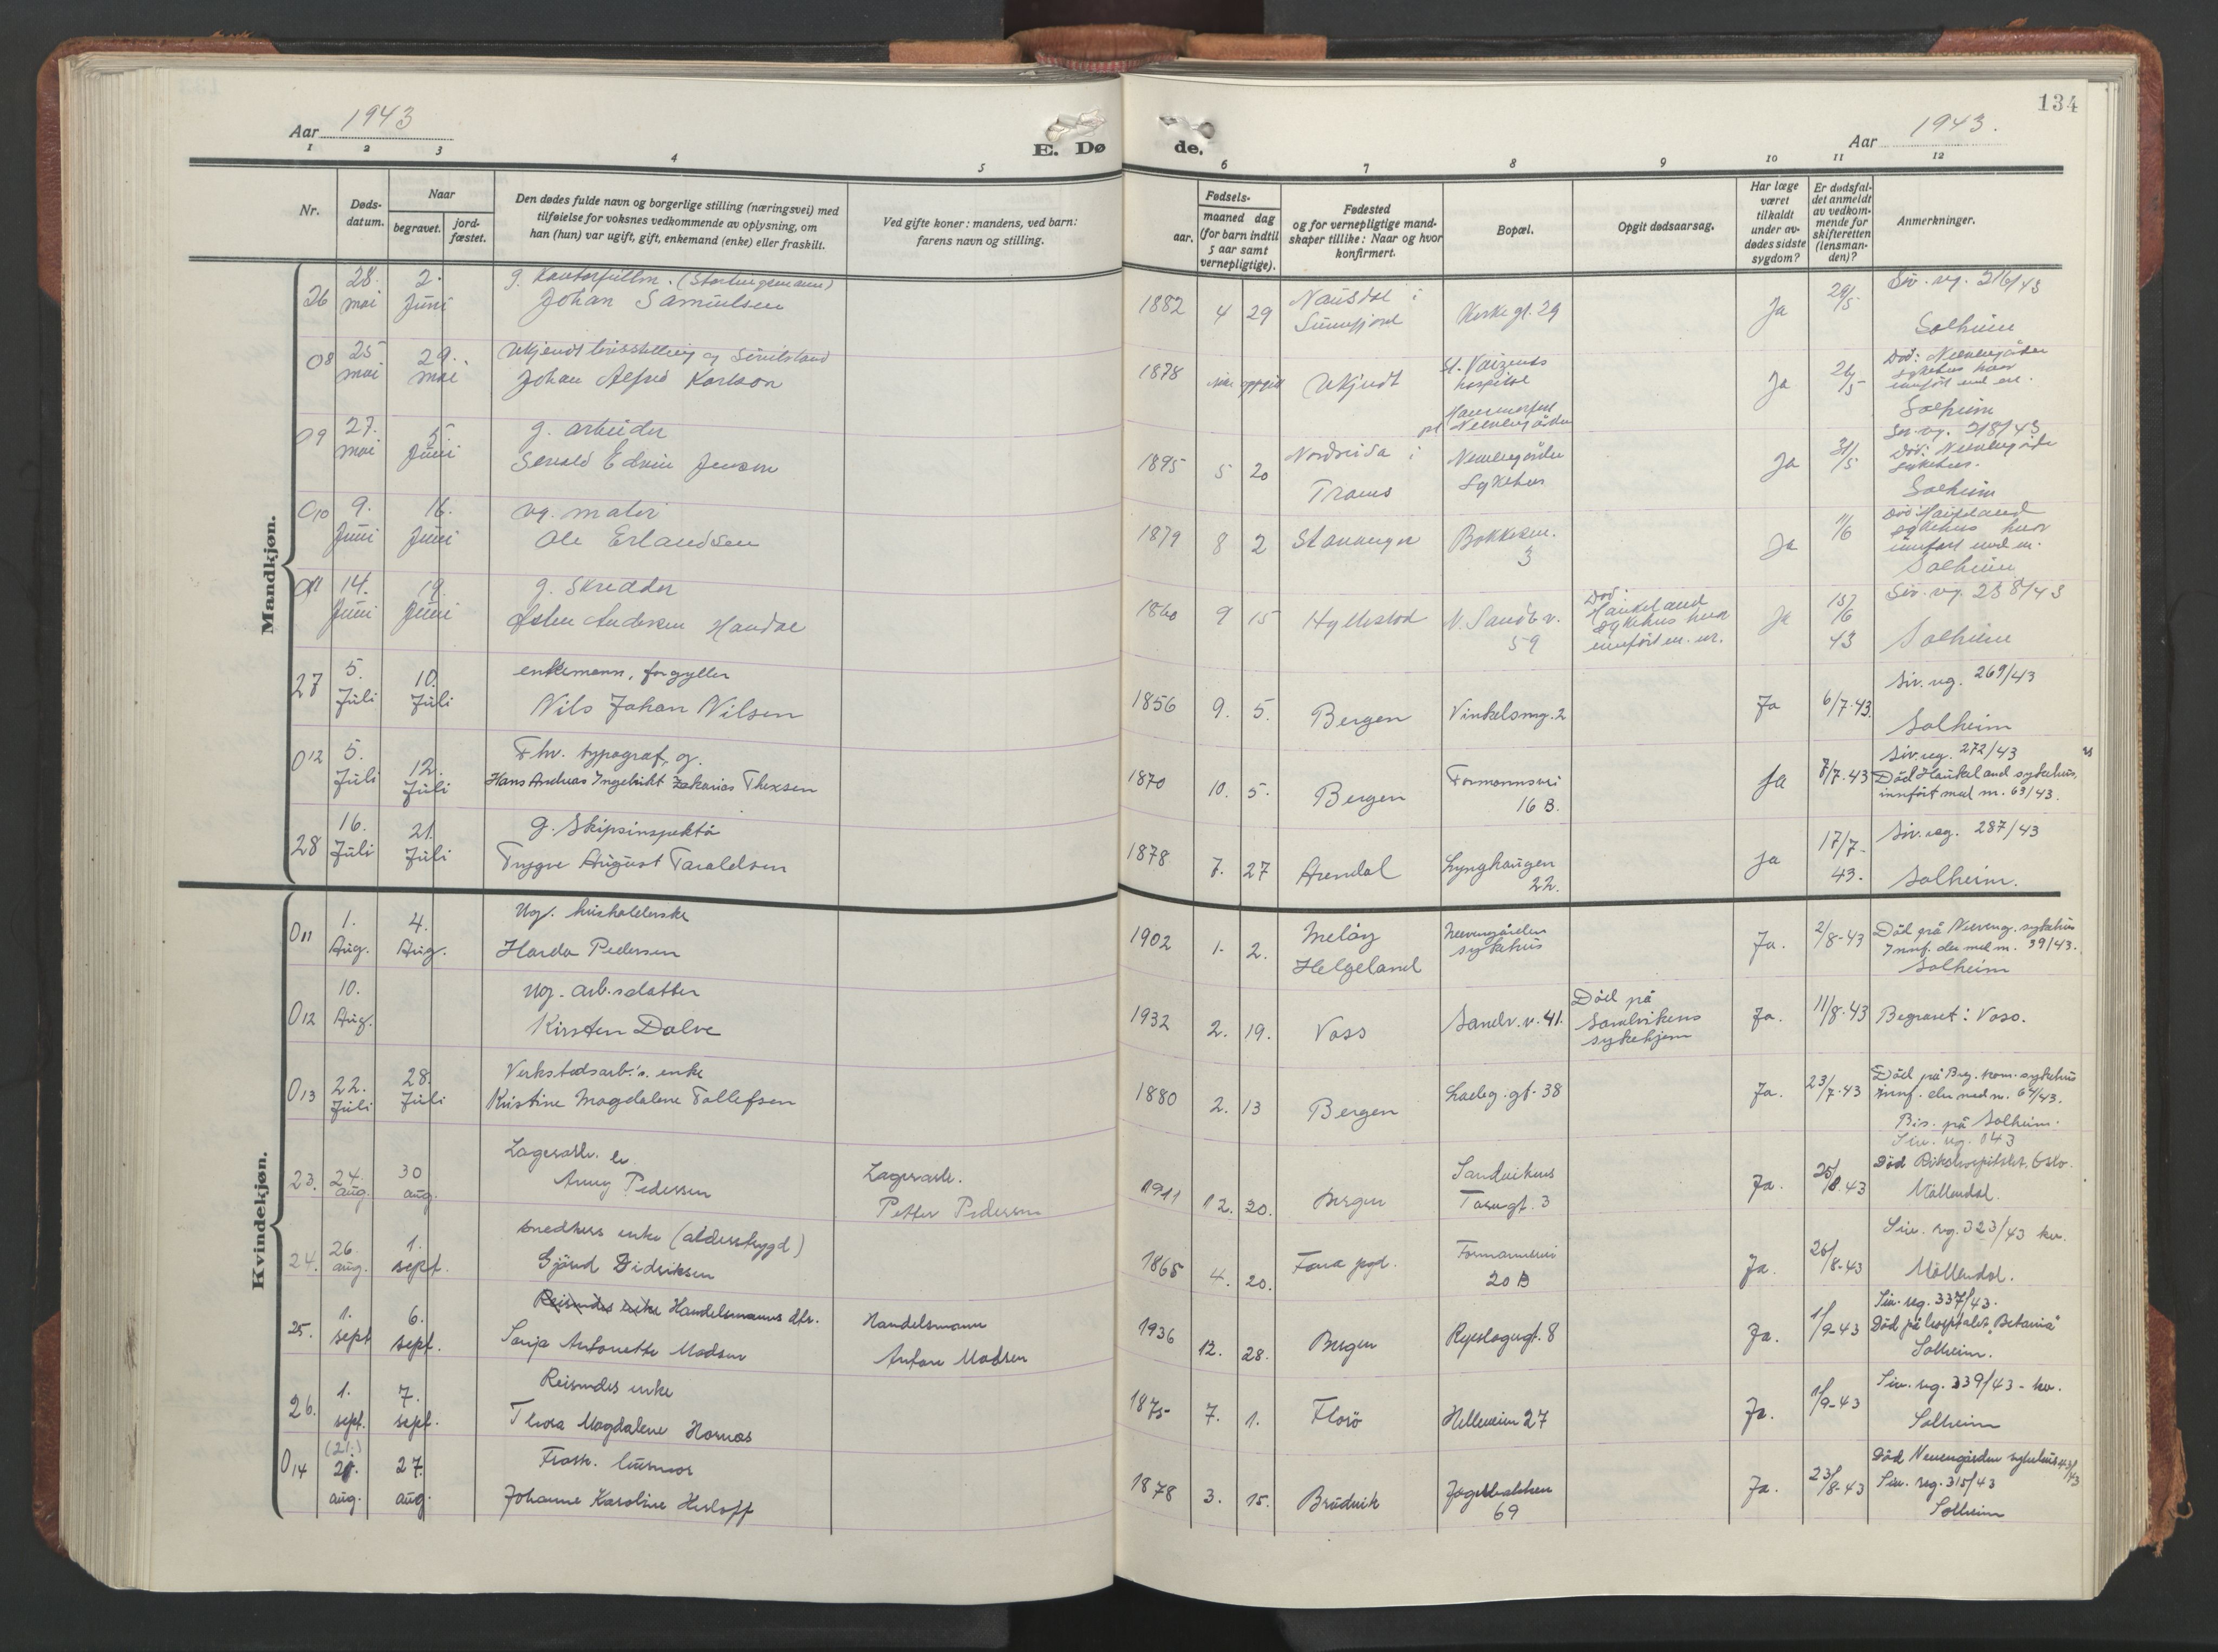 134
Aar 1943
E. Døde.
Aar 1943.
1 2 3 4 5 6 7 8 9 10 11 12
Nr.
Døds-
datum.
Naar
begravet.
jord-
fæstet.
Den dødes fulde navn og borgerlige stilling (næringsvei) med
tilføielse for voksnes vedkommende av oplysning, om
han (hun) var ugift, gift, enkemand (enke) eller fraskilt.
Ved gifte koner: mandens, ved barn:
farens navn og stilling.
Fødsels-
aar.
maaned dag
(for barn indtil
5 aar samt
vernepligtige).
Fødested
og for vernepligtige mand-
skaper tillike: Naar og hvor
konfirmert.
Bopæl.
Opgit dødsaarsag.
Har læge
været
tilkaldt
under av-
dødes sidste
sygdom?
Er dødsfal-
det anmeldt
av vedkom-
mende for
skifteretten
(lensman-
den)?
Anmerkninger.
Mandkjøn.
26 28. mai 2. Juni g.
Johan Samuelsen
1882 4 29 Naustdal i
Sunnfjord
Kirkegt. 29 Ja 29/5 Siv. reg. 216/43
Solheim
08 25 mai 29. mai Ukjendt livsstilling og Sivilstand
Johan Alfred Karlson
1878 ikke oppgitt Ukjendt
hospital
Ja 26/5 Död: Neevengården
sykehus hvor
innført med nr.
Solheim
09 27. mai 5. Juni g. arbeider
Edvin Jenson
1895 5 20 Nordreisa i
Troms
Neevengården
Sykehus
Ja 31/5 Siv. reg. 218/43
Död: Neevengården
sykehus.
Solheim
010 9. Juni 16. Juni ug. maler
Ole Erlandsen
1879 8 2 Stavanger 3 Ja 11/6 Död: Haukeland
sykehus hvor
innført med nr.
Solheim
011 14. Juni 19. Juni g. Skredder
Andersen
1860 9 15 Hyllestad N. Sandv. v.
59
Död:
Haukeland
sykehus hvor
innført m. nr.
Ja 15/6 43 Siv. reg. 238/43
Solheim
27 5. Juli 10. Juli enkemann, forgyller
Nils Johan Nilsen
1856 9. 5. Bergen Vinkelsmg. 2 Ja 6/7.43. Siv. reg. 269/43
Solheim
012 5. Juli 12. Juli Fhv. typograf, g.
Hans Andreas Ingebrikt Zakarias Thexsen
1870 10. 5. Bergen Formannsvei
16 B.
Ja 8/7.43 Siv. reg. 272/43
Död Haukeland sykehus,
innfört med nr. 63/43.
28 16. Juli 21. Juli g. Skipsinspektör
Trygve August Taraldsen
1878 7. 27 Arendal Lynghaugen
22.
Ja 17/7-43. Siv. reg. 287/43
Solheim.
Kvindekjøn.
011 1. Aug. 4. Aug. Ug. husholderske
Harda Pedersen
1902 1. 2. Melöy
Helgeland
Neevengården
sykehus
Ja. 2/8-43 Död på Neeveng. sykehus
Innf. der med nr. 39/43.
Solheim
012 10. Aug. Ug. arb.s datter
Kirsten Dolve
1932 2. 19. Voss Sandv. v. 41. Död på
Sandvikens
sykehjem
Ja. 11/8-43 Begravet: Voss.
013 22. Juli 28. Juli Verkstedsarb.'s. enke
Kristine Magdalene Tollefsen
1880 2. 13 Bergen Ladeg. gt. 38 Ja. 23/7-43 Död på Brg. kom. sykehus
Innf. der med nr. 67/43.
Bis. på Solheim.
23. 24. aug. 30 aug. Lagerarb. e.
Anny Pedersen
Lagerarb.
Petter Pedersen
1911 12. 20. Bergen Sandvikens
3
Ja. 25/8.43 Siv. reg. 43
Död Rikshospitalet, Oslo.
Möllendal.
24. 26. aug. 1. sept. snedkers enke (alderstrygd)
Gjörid Didriksen
1865 4. 20. Fana pgd. Formannsvei
20 B
Ja. 26/8-43 Siv. reg. 323/43 kv.
Möllendal.
25. 1. sept 6. sept. Reisendes enke Handelsmanns dtr.
Sonja Antonette Madsen
Handelsmann
Anfare Madsen
1936 12. 28. Bergen 8 Ja. 1/9-43 Siv. reg. 337/43.
Död på hospitalet "Betania"
Solheim.
26. 1. sept. 7. sept. Reisendes enke
Thora Magdalene Hornæs
1875 7. 1. Florö Helleveien 27 Ja. 1/9-43 Siv. reg. 339/43 - kv.
Solheim
014 (21.) 21. aug. 27. aug. Frask. husmor
Johanne Karoline Herloff
1878 3. 15. Brudvik
69
Ja. 23/8-43 Död Neevengården sykehus 43/43
Siv. reg. 315/43
Solheim